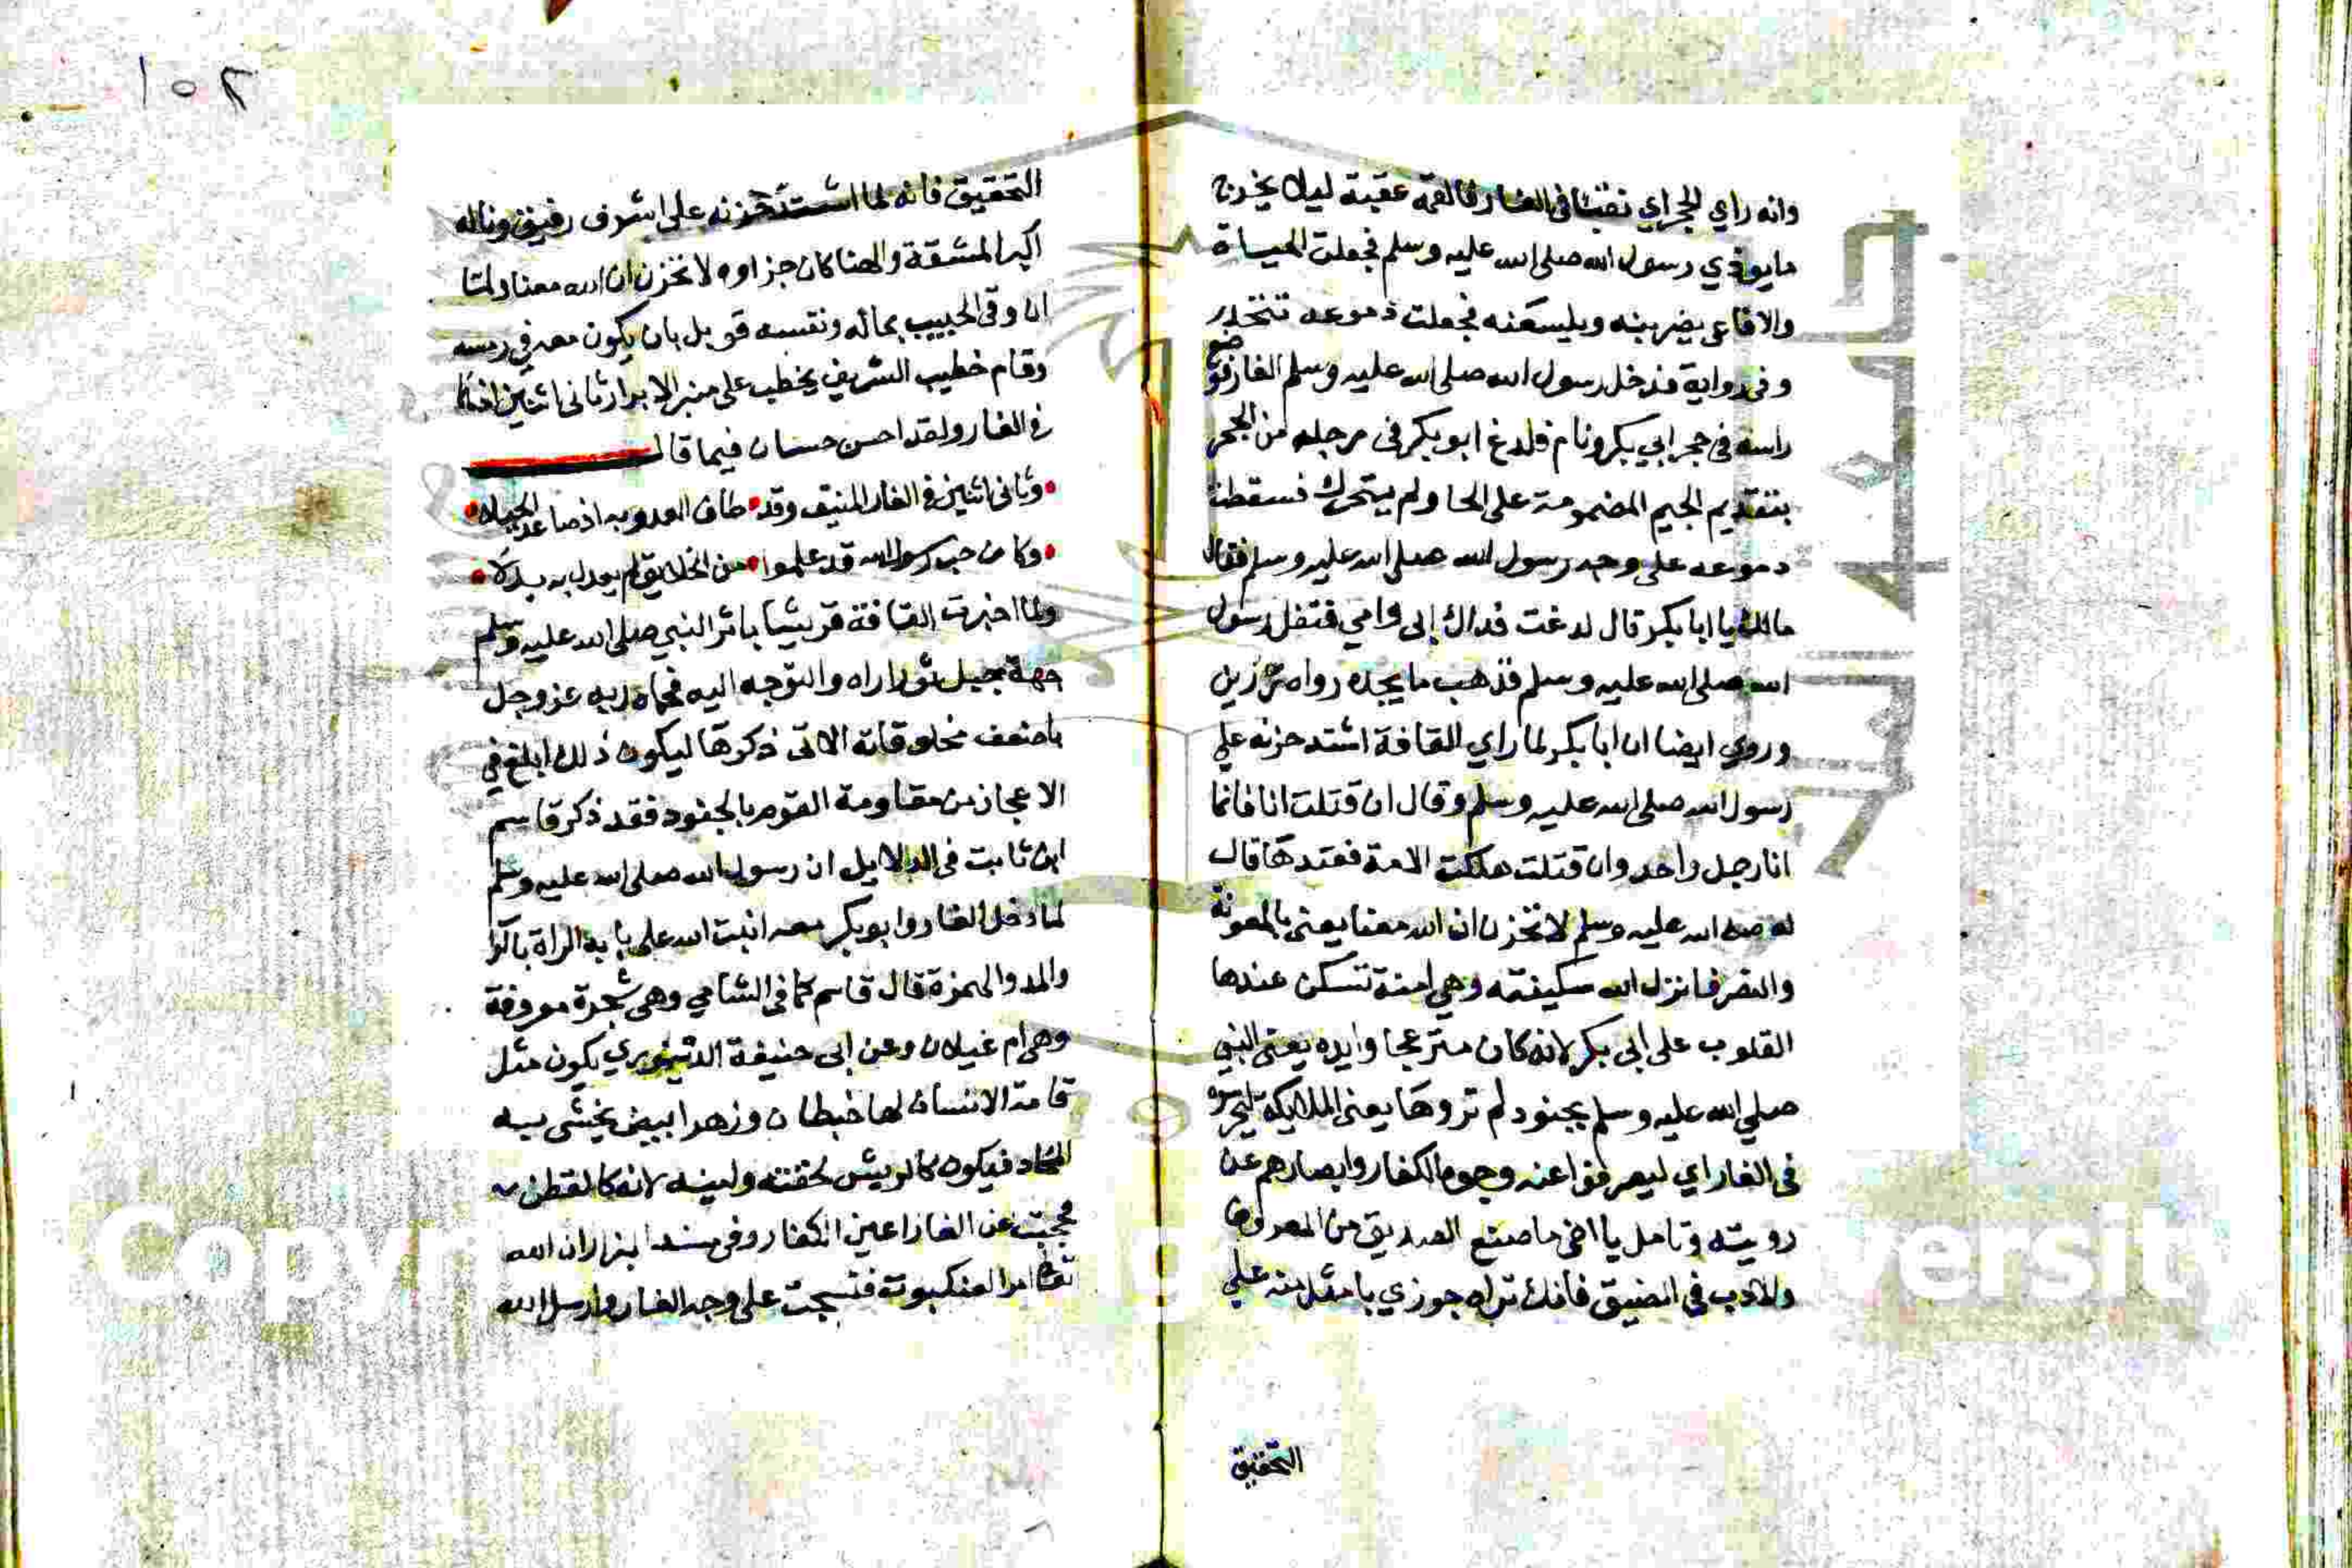 وانه راي الجحر اي نقبا في الغار فالقمه عقبه ليلا يخرج
ما يوذي رسول الله صلى الله عليه وسلم فجعلت الحيات
والافاعي يضربنه ويلسعنه فجعلت دموعه تتحدر
وفي رواية فدخل رسول الله صلى الله عليه وسلم الغار فوضع
راسه في حجر ابي بكر ونام فلدغ ابو بكر في رجله من الجحر
بتقديم الجيم المضمومة على الحا ولم يتحرك فسقطت
دموعه على وجه رسول الله صلى الله عليه وسلم فقال
مالك يا ابا بكر قال لدغت فداك ابي وامي فتفل رسول
الله صلى الله عليه وسلم فذهب ما يجده رواه رزين
وروي ايضا ان ابا بكر لما راي القافة اشتد حزنه علي
رسول الله صلى الله عليه وسلم وقال ان قتلت انا فانما
انا رجل واحد وان قتلت هلكت الامة فعندها قال
له صلى الله عليه وسلم لا تحزن ان الله معنا يعني بالمعونة
والنصر فانزل الله سكينته وهي امنة تسكن عندها
القلوب على ابي بكر لانه كان منزعجا وايده يعني النبي
صلي الله عليه وسلم بجنود لم تروها يعني الملايكة
في الغار اي ليصرفوا عنه وجوه الكفار وابصارهم عن
رويته وتامل يا اخي ما صنع الصديق من المعروف
والادب في الضيق فانك تراه جوزي بامثل منه علي
التحقيق
١٠٢
التحقيق فانه لما اشتد حزنه على اشرف رفيق وناله
اكبر المشقة والعنا كان جزاوه لا تحزن ان الله معنا ولما
ان وقى الحبيب بماله ونفسه قوبل بان يكون معه في رمسه
وقام خطيب التشريف يخطب على منبر الابرار ثاني اثنين اذ هما
في الغار ولقد احسن حسان فيما قال
وثاني اثنين في الغار المنيف وقد طاف العدو به اذ صاعد الجبلا
وكان حب رسول الله قد علموا من الخلايق لم يعدل به بدلا
ولما اخبرت القافة قريشا باثر النبي صلى الله عليه وسلم
جهة جبل ثور اراه والتوجه اليه فحماه ربه عز وجل
باضعف مخلوقاته الاتي ذكرها ليكون ذلك ابلغ في
الاعجاز من مقاومة القوم بالجنود فقد ذكر قاسم
ابن ثابت في الدلايل ان رسول الله صلى الله عليه وسلم
لما دخل الغار وابو بكر معه انبت الله على بابه الراة بالرا
والمد والهمزة قال قاسم كما في الشامي وهي شجرة معروفة
وهي ام غيلان وعن ابي حنيفة الدينوري يكون مثل
قامة الانسان لها خيطان وزهر ابيض يحشى به
المخاد فيكون كالريش لخفته ولينه لانه كالقطن
فحجبت عن الغار اعين الكفار وفي مسند البزار ان الله
تعالى امر العنكبوت فنسجت على وجه الغار وارسل الله